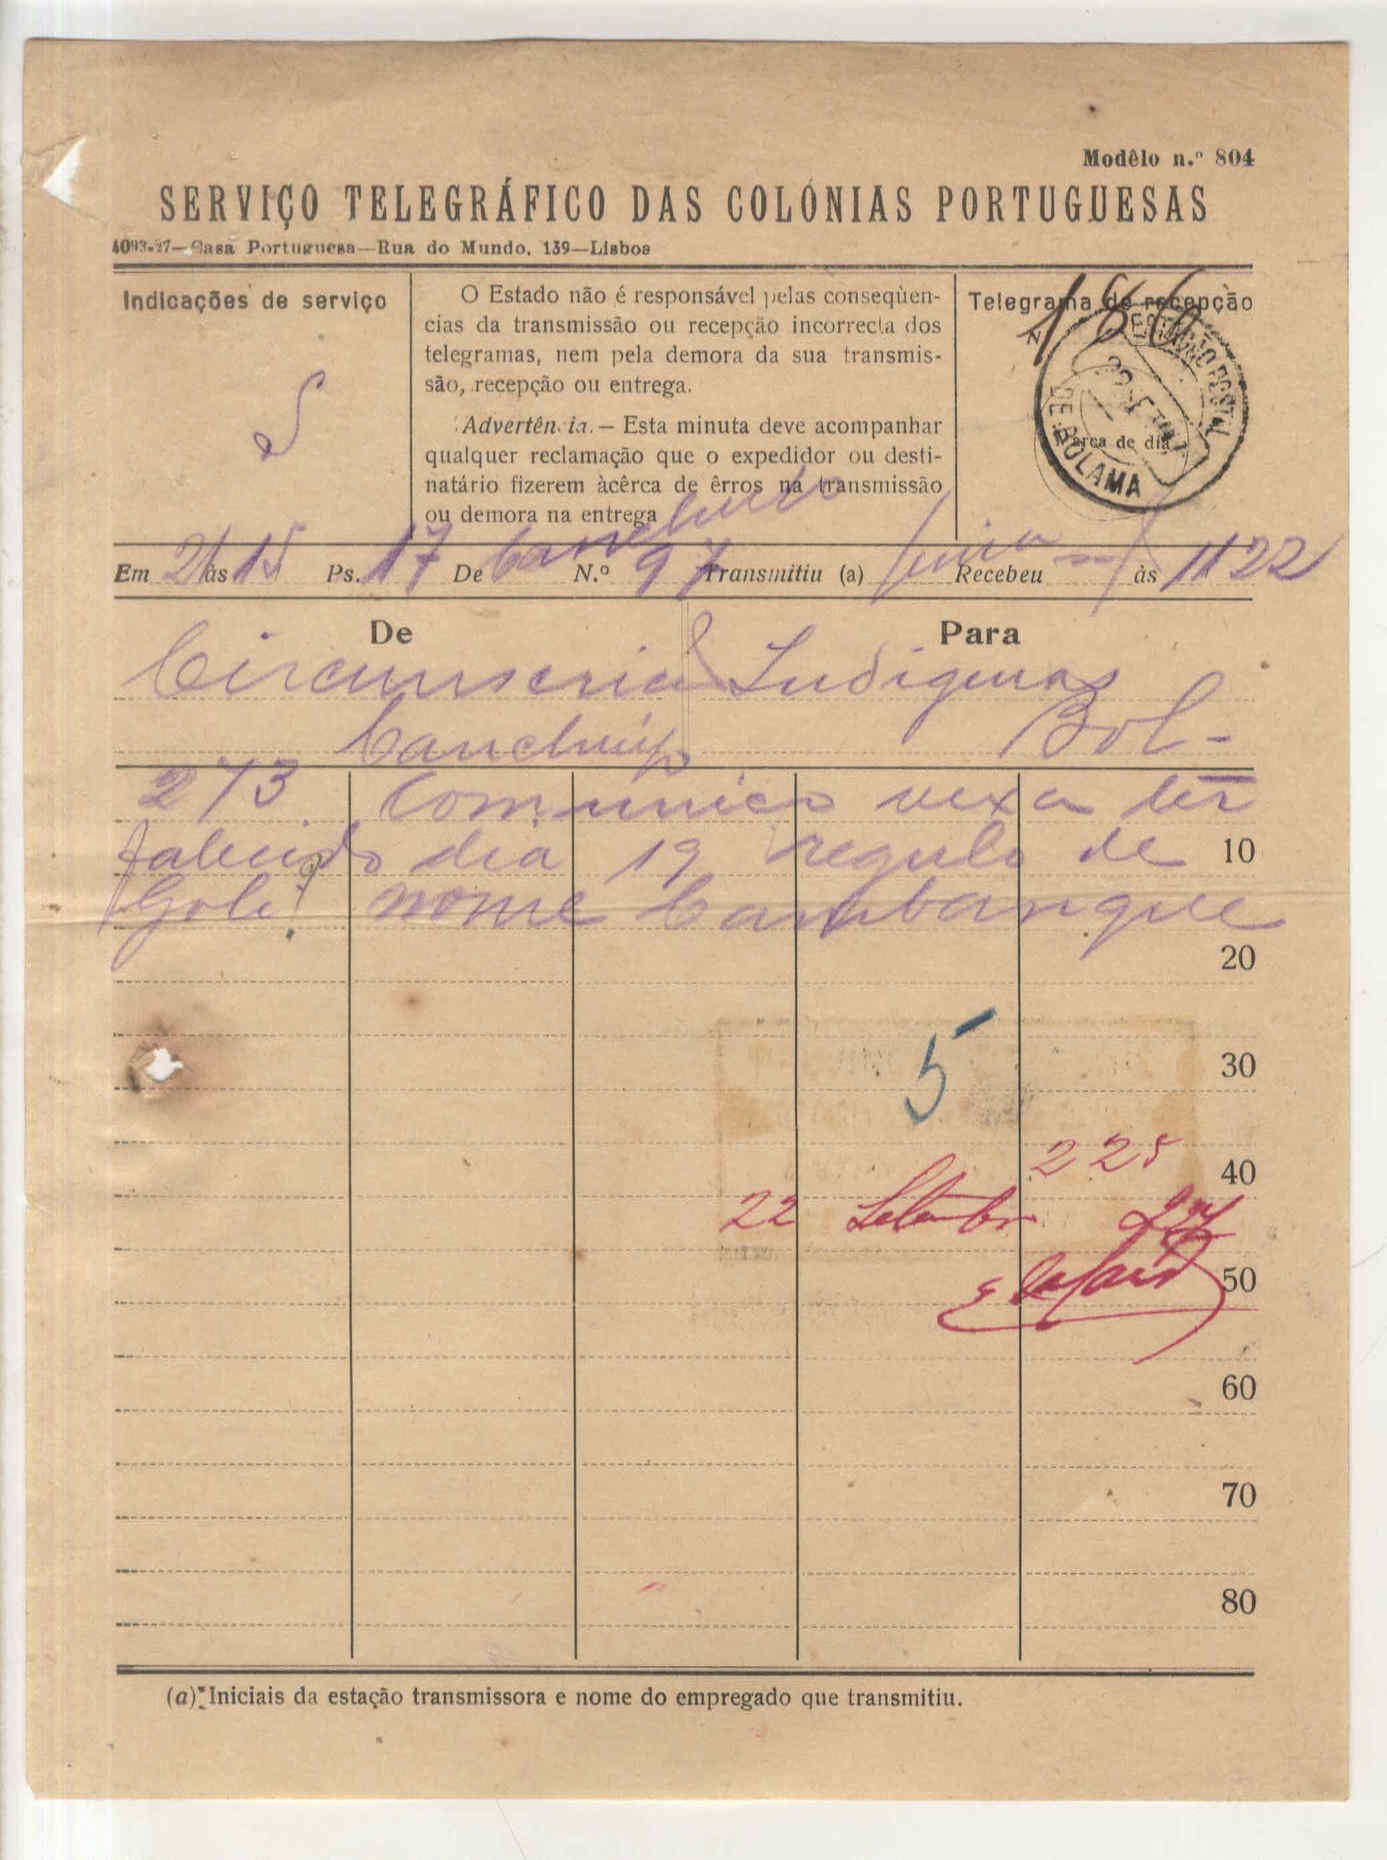 Modêlo n.º 804
SERVIÇO TELEGRÁFICO DAS COLÓNIAS PORTUGUESAS
4093-27—Casa Portuguesa—Rua do Mundo, 139—Lisboa
Indicações de serviço
S
O Estado não é responsável pelas conseqüen-
cias da transmissão ou recepção incorrecta dos
telegramas, nem pela demora da sua transmis-
são, recepção ou entrega.
Advertência.— Esta minuta deve acompanhar
qualquer reclamação que o expedidor ou desti-
natário fizerem àcêrca de êrros na transmissão
ou demora na entrega
Telegrama de recepção
N.
166
Marca de dia
POSTAL
DE BOLAMA
Em 21 às 15 Ps. 17 De Canchungo N.º 97 Transmitiu (a) Recebeu às 11 22
De
Para
Circunscrição Indigenas
Canchungo Bol-
273 Comunico vexa ter
falecido dia 19 regulo de 10
nome Cambanque
20
30
40
50
60
70
80
5
225
22 Setembro 27
(a) Iniciais da estação transmissora e nome do empregado que transmitiu.